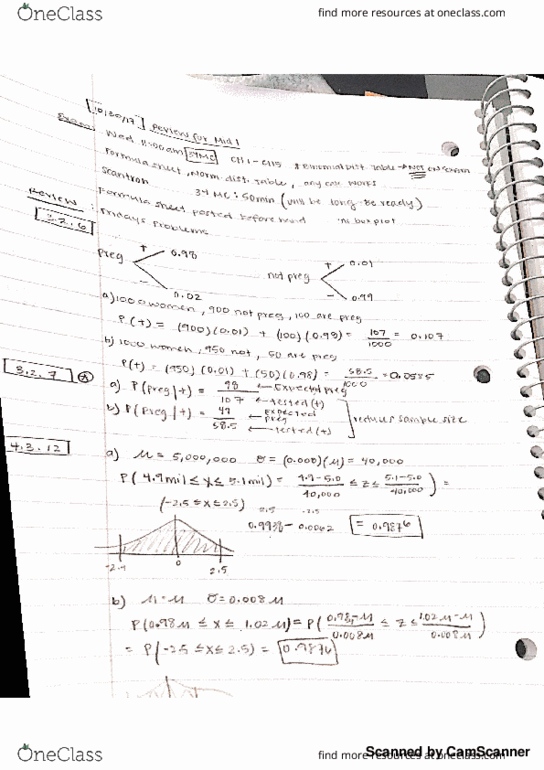 OneClass
find more resources at oneclass.com
10/30/17 Review for Mid 1
Exam: Wed 8:00am CH 1 - CH5 * Binomial Dist. Table → NOT ON EXAM
Formula sheet, Norm. dist. table, any calc works
Scantron 34 MC : 50min (will be long. Be ready)
Review : Formula sheet posted before hand *no box plot
3.2.6 Fridays Problems
preg + 0.98
- 0.02
not preg + 0.01
- 0.99
a) 1000 women, 900 not preg, 100 are preg
P(+) = (900)(0.01) + (100)(0.98) = 107/1000 = 0.107
b) 1000 women, 950 not, 50 are preg
P(+) = (950)(0.01) + (50)(0.98) = 58.5/1000 = 0.0585
3.2.7 a) P(preg|+) = 98/107 ← Expected preg ← tested (+)
b) P(preg|+) = 49/58.5 ← expected preg ← tested (+) reduces sample size
4.3.12
a) μ = 5,000,000 σ = (0.008)(μ) = 40,000
P(4.9mil ≤ x ≤ 5.1mil) = 4.9-5.0/40,000 ≤ z ≤ 5.1-5.0/40,000 =
(-2.5 ≤ x ≤ 2.5)
2.5 -2.5
0.9938 - 0.0062 = 0.9876
0 2.5
b) μ = μ σ = 0.008μ
P(0.98μ ≤ x ≤ 1.02μ) = P(0.98μ-μ/0.008μ ≤ z ≤ 1.02μ-μ/0.008μ)
= P(-2.5 ≤ x ≤ 2.5) = 0.9876
OneClass
find more resources at oneclass.com
Scanned by CamScanner